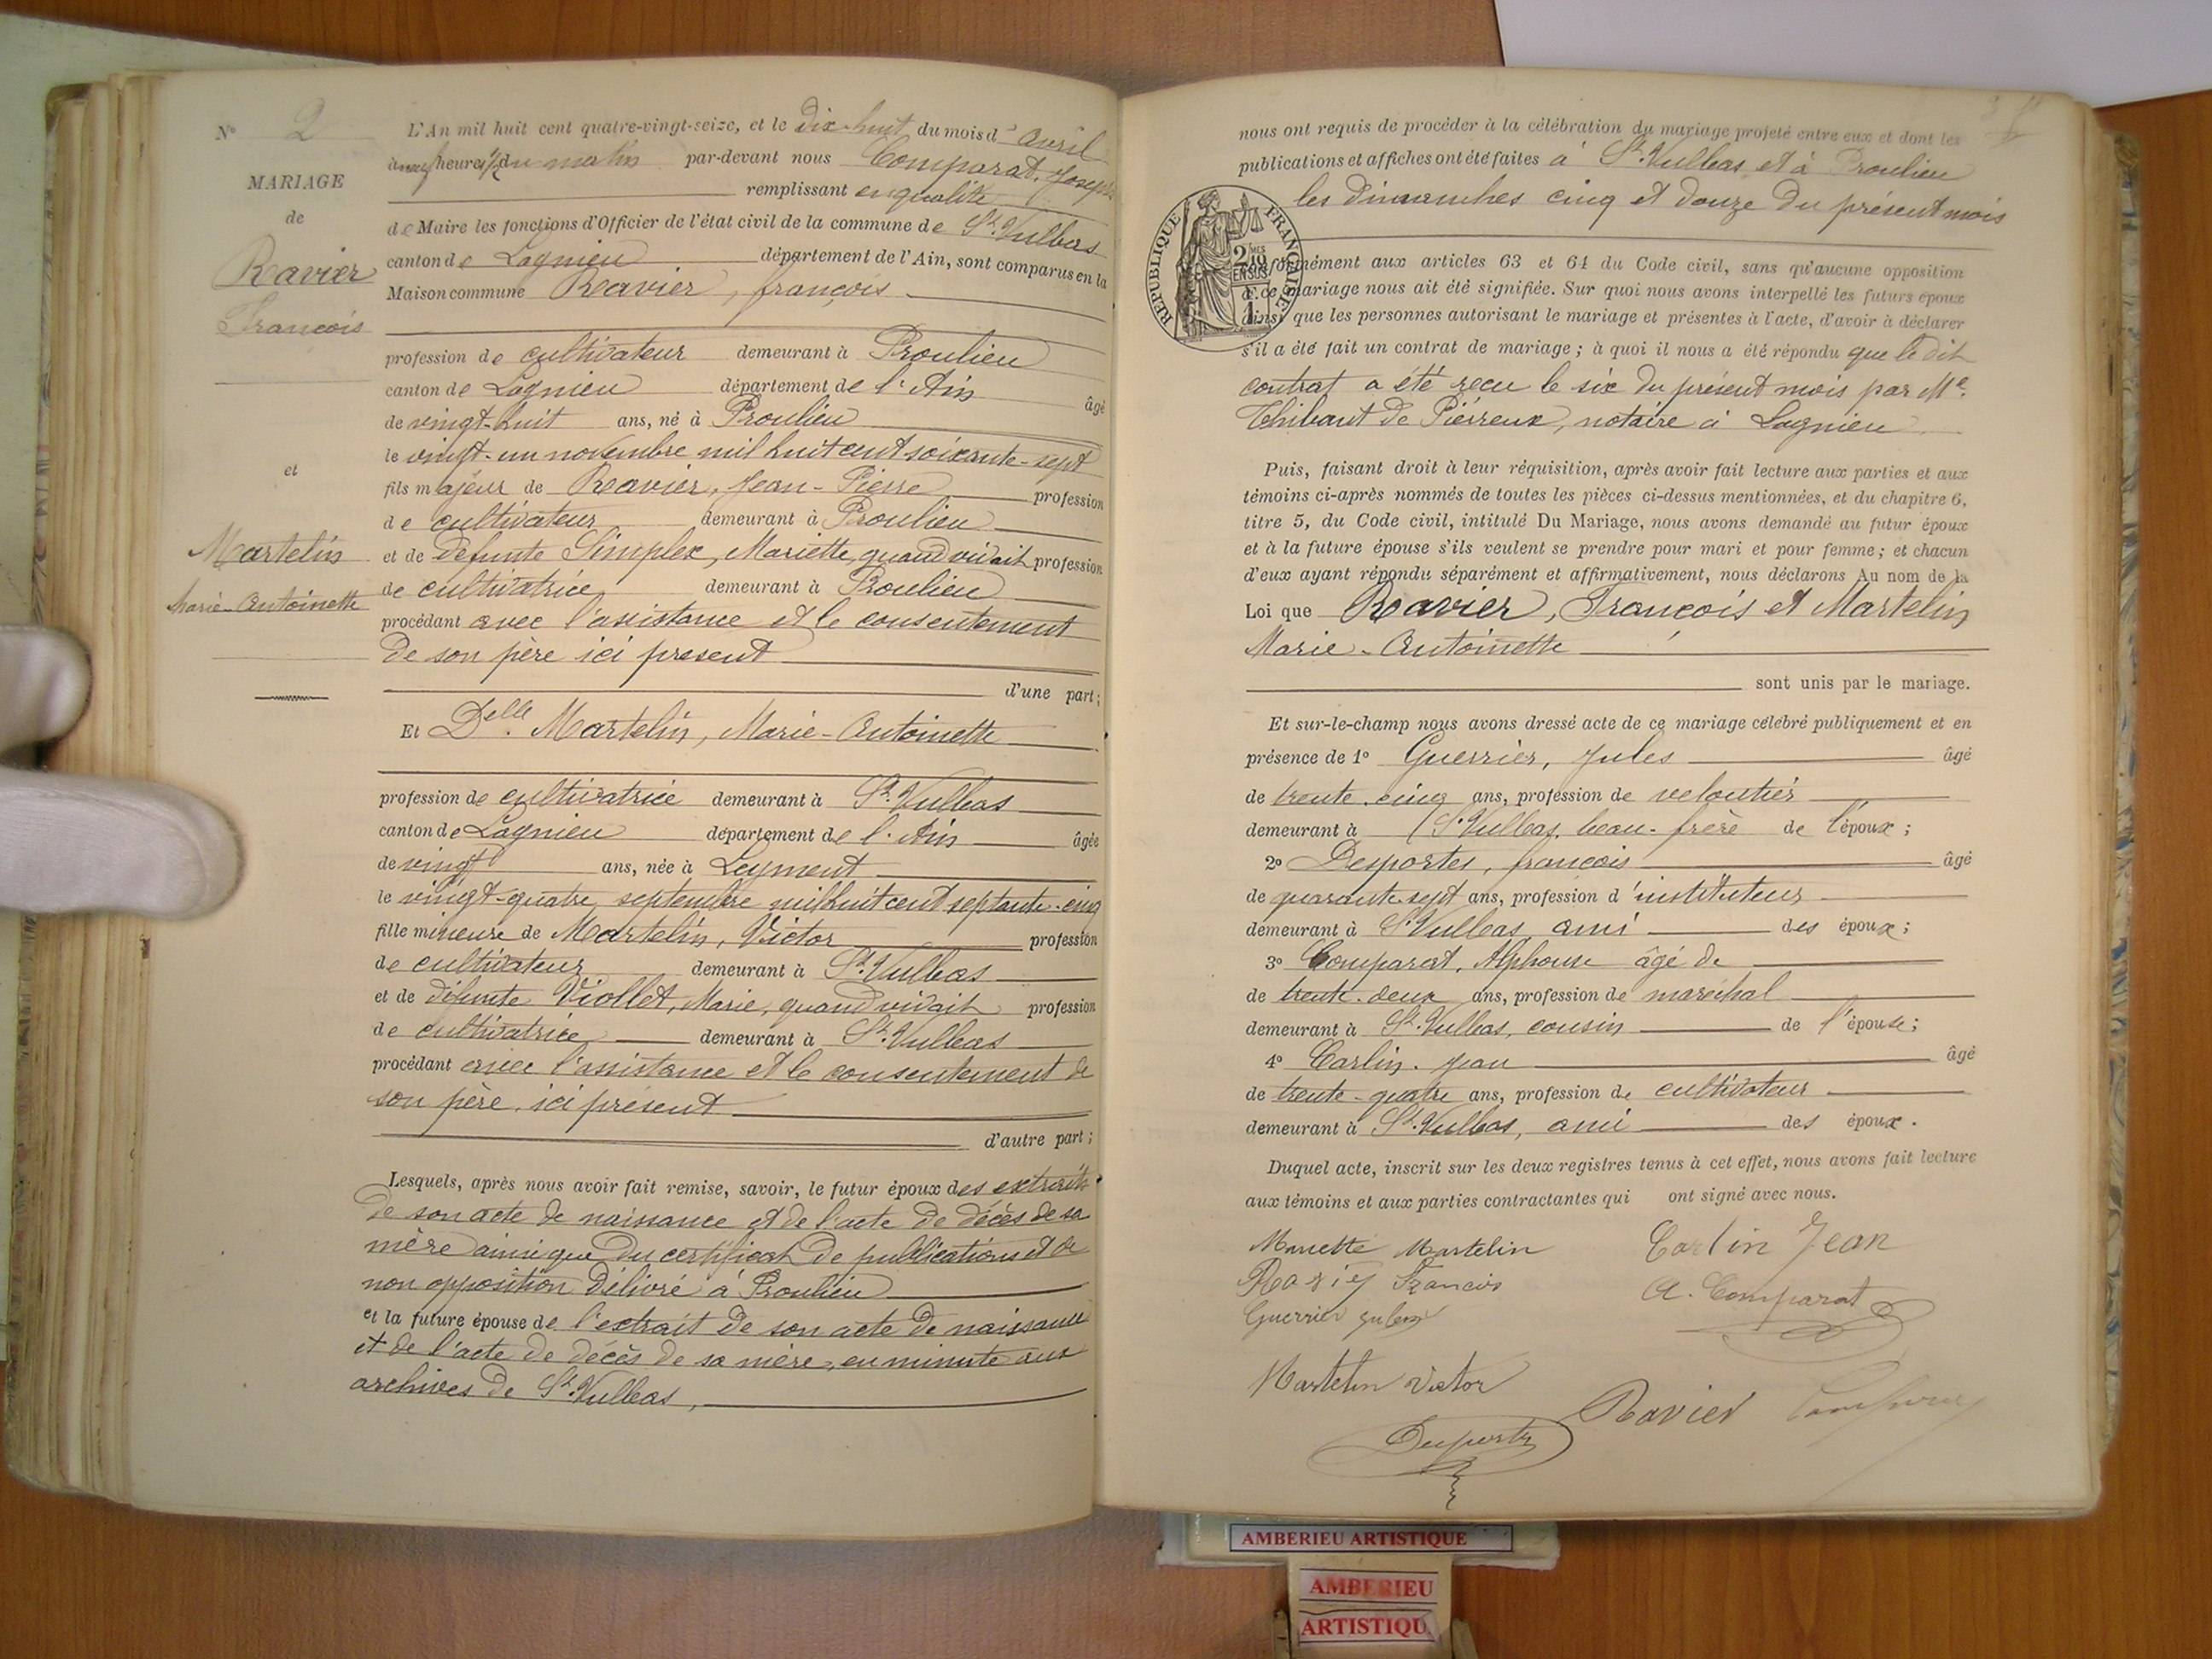 N° 2
MARIAGE
de
Ravier
François
et
Martelin
Marie-Antoinette
L'An mil huit cent quatre-vingt-seize, et le dix-huit du mois d'avril
à neuf heures 1/2 du matin par-devant nous Comparat, Joseph
remplissant en qualité
de Maire les fonctions d'Officier de l'état civil de la commune de St. Vulbas
canton de Lagnieu département de l'Ain, sont comparus en la
Maison commune Ravier, françois
profession de cultivateur demeurant à Proulieu
canton de Lagnieu département de l'Ain âgé
de vingt-huit ans, né à Proulieu
le vingt-un novembre mil huit cent soixante-sept
fils majeur de Ravier, Jean-Pierre profession
de cultivateur demeurant à Proulieu
et de défunte Simplex, Mariette, quand vivait profession
de cultivatrice demeurant à Proulieu
procédant avec l'assistance et le consentement
de son père ici présent
d'une part;
Et Delle. Martelin, Marie-Antoinette
profession de cultivatrice demeurant à St. Vulbas
canton de Lagnieu département de l'Ain âgée
de vingt ans, née à Leyment
le vingt-quatre septembre mil huit cent septante-cinq
fille mineure de Martelin, Victor profession
de cultivateur demeurant à St. Vulbas
et de défunte Viollet, Marie, quand vivait profession
de cultivatrice demeurant à St. Vulbas
procédant avec l'assistance et le consentement de
son père ici présent
d'autre part;
Lesquels, après nous avoir fait remise, savoir, le futur époux des extraits
de son acte de naissance et de l'acte de décès de sa
mère ainsi que du certificat de publications et de
non opposition délivré à Proulieu
et la future épouse de l'extrait de son acte de naissance
et de l'acte de décès de sa mère, en minute aux
archives de St. Vulbas,
nous ont requis de procéder à la célébration du mariage projeté entre eux et dont les
publications et affiches ont été faites à St. Vulbas et à Proulieu
les dimanches cinq et douze du présent mois
RÉPUBLIQUE FRANÇAISE
2/10MES
EN SUS
1F.
conformément aux articles 63 et 64 du Code civil, sans qu'aucune opposition
à ce mariage nous ait été signifiée. Sur quoi nous avons interpellé les futurs époux
ainsi que les personnes autorisant le mariage et présentes à l'acte, d'avoir à déclarer
s'il a été fait un contrat de mariage; à quoi il nous a été répondu que le dit
contrat a été reçu le six du présent mois par Me.
Thibaut de Piéreux, notaire à Lagnieu
Puis, faisant droit à leur réquisition, après avoir fait lecture aux parties et aux
témoins ci-après nommés de toutes les pièces ci-dessus mentionnées, et du chapitre 6,
titre 5, du Code civil, intitulé Du Mariage, nous avons demandé au futur époux
et à la future épouse s'ils veulent se prendre pour mari et pour femme; et chacun
d'eux ayant répondu séparément et affirmativement, nous déclarons Au nom de la
Loi que Ravier, François et Martelin
Marie-Antoinette
sont unis par le mariage.
Et sur-le-champ nous avons dressé acte de ce mariage célébré publiquement et en
présence de 1° Guerrier, Jules âgé
de trente-cinq ans, profession de veloutier
demeurant à St. Vulbas, beau-frère de l'époux;
2° Desportes, françois âgé
de quarante-sept ans, profession d'instituteur
demeurant à St. Vulbas ami des époux;
3° Comparat, Alphonse âgé de
de trente-deux ans, profession de maréchal
demeurant à St. Vulbas, cousin de l'épouse;
4° Carlin, Jean âgé
de trente-quatre ans, profession de cultivateur
demeurant à St. Vulbas, ami des époux.
Duquel acte, inscrit sur les deux registres tenus à cet effet, nous avons fait lecture
aux témoins et aux parties contractantes qui ont signé avec nous.
Mariette Martelin Carlin Jean
Ravier Francois A. Comparat
Guerrier Jules
Martelin Victor
Ravier
AMBERIEU ARTISTIQUE
AMBERIEU
ARTISTIQU